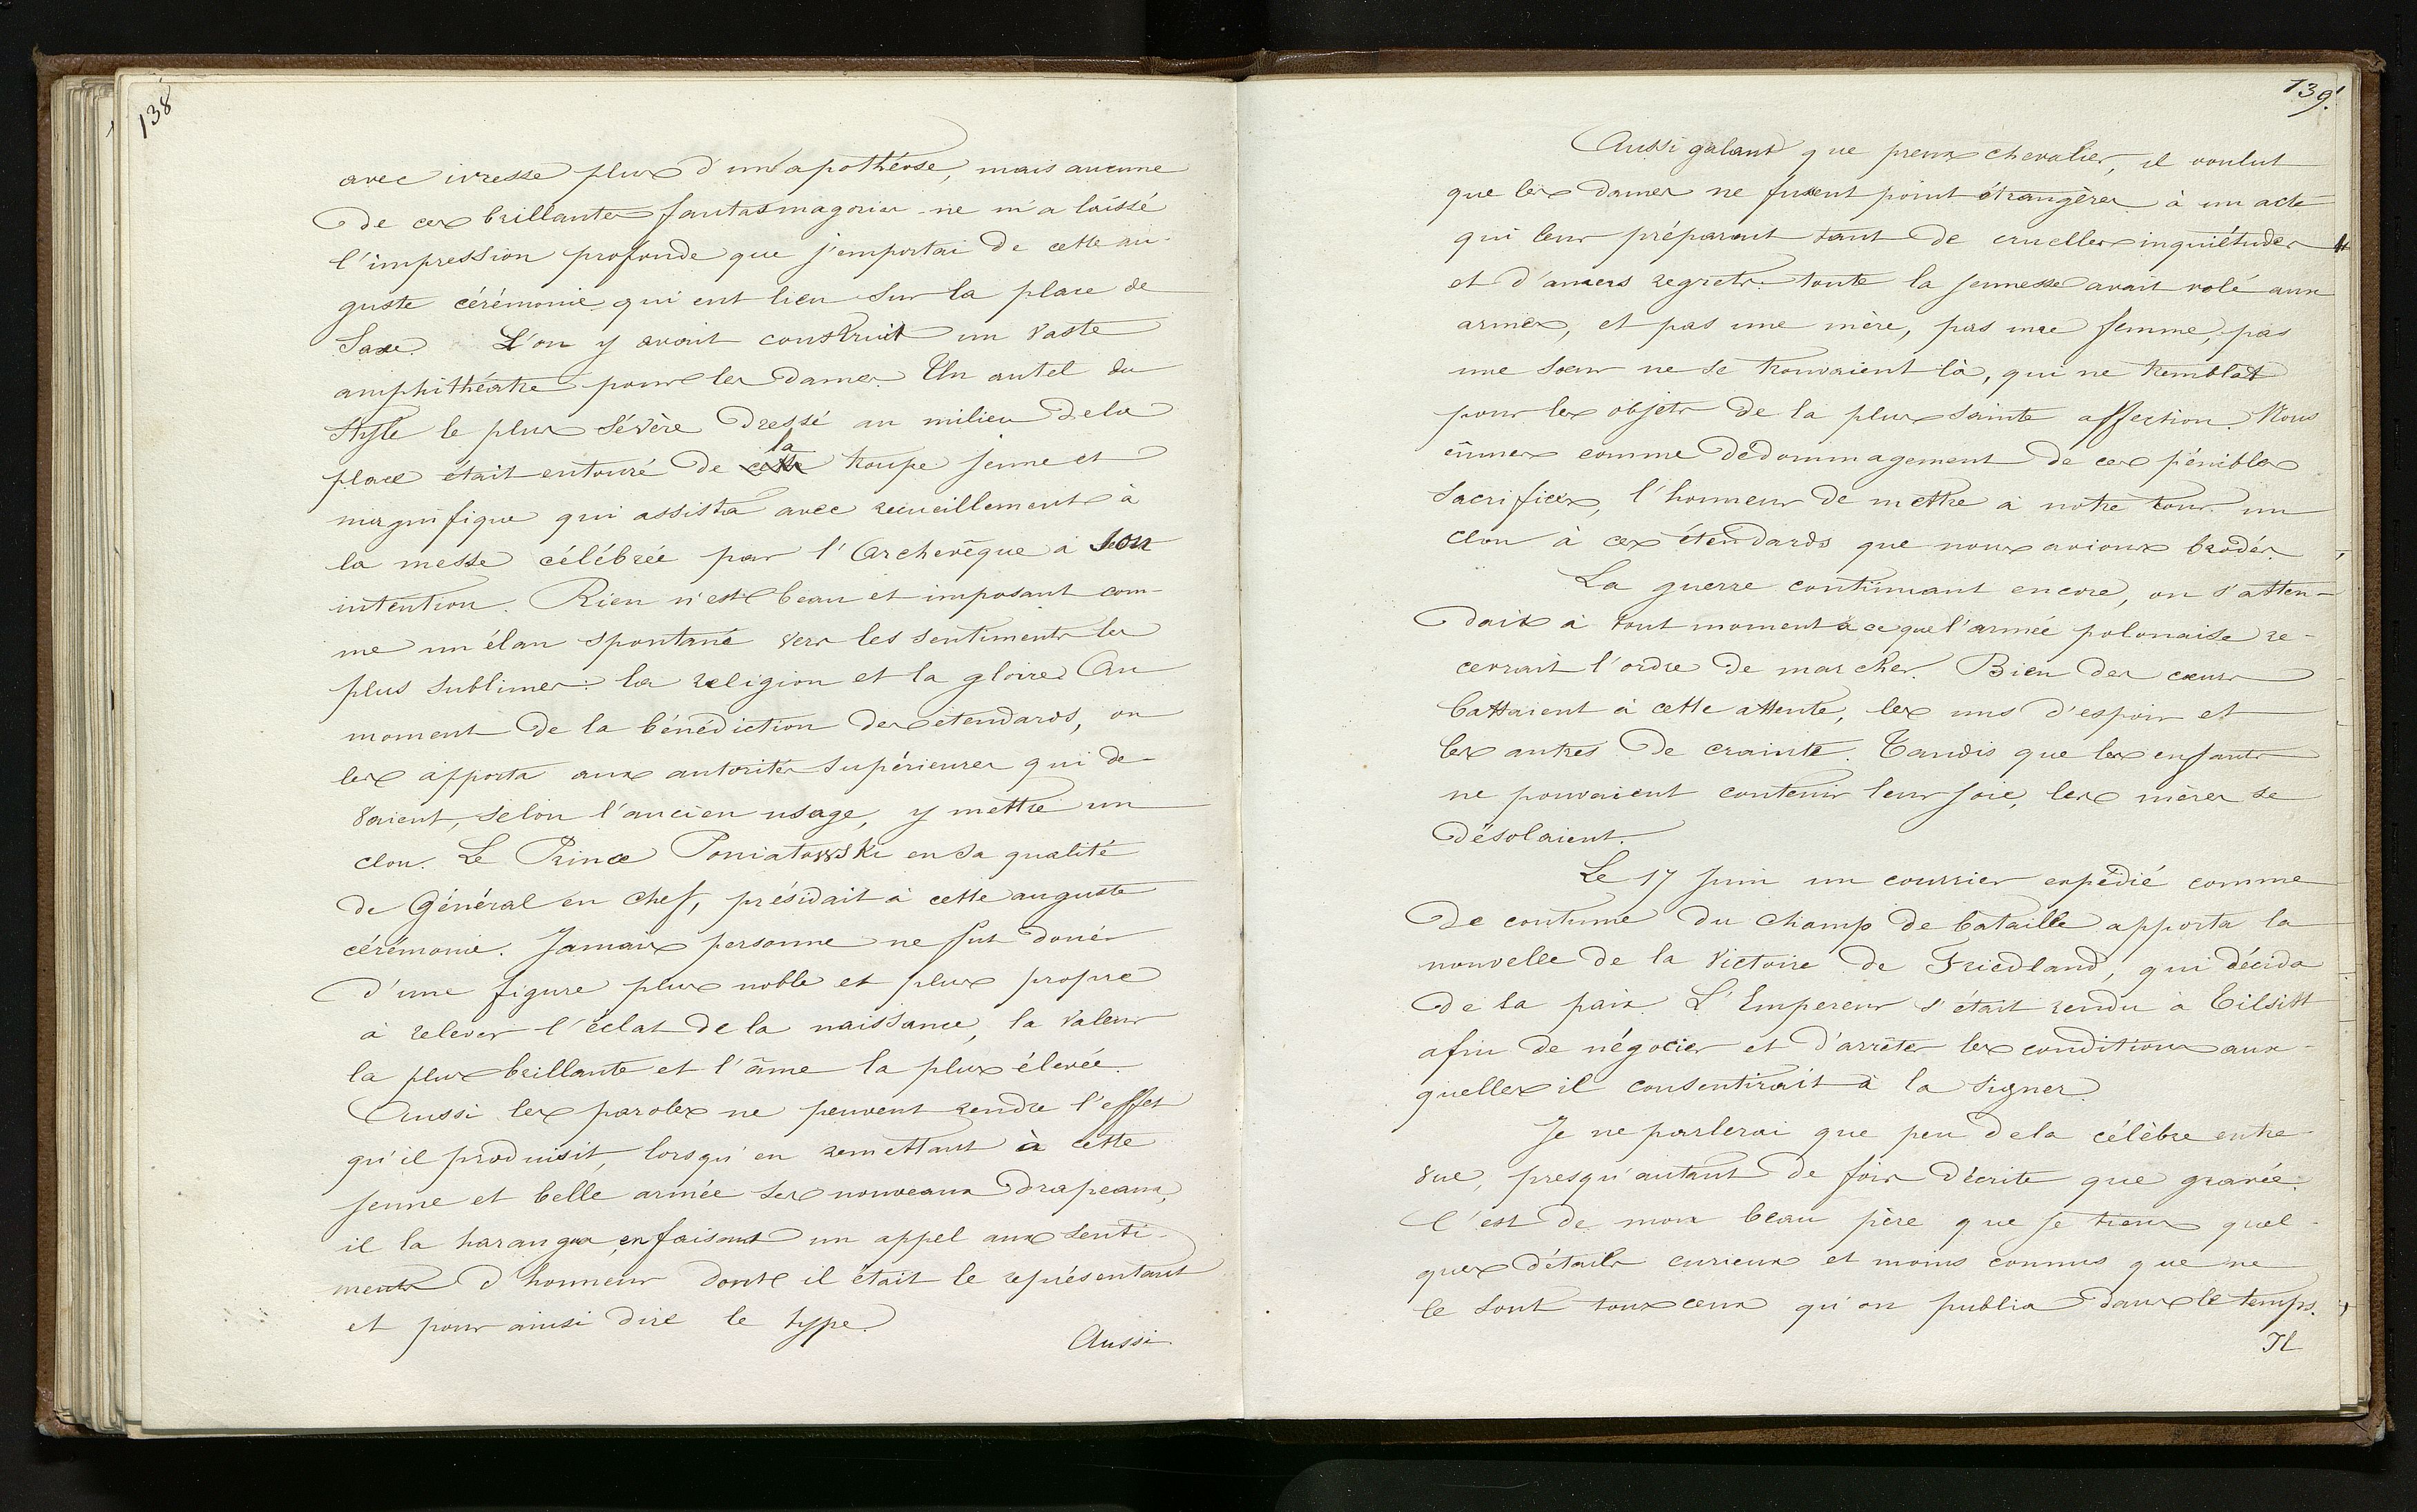 138
avec ivresse plus d'un apothéose, mais aucune
de ces brillantes fantasmagories ne m'a laissé
l'impression profonde que j'emportai de cette au-
guste cérémonie qui eut lieu sur la place de
Saxe. L'on y avait construit un vaste
amphithéatre pour les dames. Un autel du
style le plus sévère dressé au milieu de la
la
place était entouré de cette troupe jeune et
magnifique qui assista avec recueillement à
la messe célébrée par l'Archevêque à son
intention. Rien n'est beau et imposant com-
me un élan spontané vers les sentiments les
plus sublimes: la religion et la gloire. Au
moment de la bénédiction des étendards, on
les apporta aux autorités supérieures qui de-
vaient, selon l'ancien usage, y mettre un
clou. Le Prince Poniatowski en sa qualité
de Général en chef, présidait à cette auguste
cérémonie. Jamais personne ne fut douée
d'une figure plus noble et plus propre
à relever l'éclat de la naissance, la valeur
la plus brillante et l'âme la plus élevée.
Aussi les paroles ne peuvent rendre l'effet
qu'il produisit, lorsqu'en remettant à cette
jeune et belle armée ses nouveaux drapeaux,
il la harangua en faisant un appel aux senti-
ments d'honneur dont il était le représentant
et pour ainsi dire le type.
Aussi
139.
Aussi galant que preux chevalier, il voulut
que les dames ne fussent point étrangères à un acte
qui leur préparait tant de cruelles inquiétudes
et d'amers regrets: toute la jeunesse avait volé aux
armes, et pas une mère, pas une femme, pas
une soeur ne se trouvaient là, qui ne tremblât
pour les objets de la plus sainte affection. Nous
eûmes comme dédommagement de ces pénibles
sacrifices, l'honneur de mettre à notre tour un
clou à ces étendards que nous avions brodés.
La guerre continuant encore, on s'atten-
dait à tout moment à ce que l'armée polonaise re-
cevrait l'ordre de marcher. Bien des coeurs
battaient à cette attente, les uns d'espoir et
les autres de crainte. Tandis que les enfants
ne pouvaient contenir leur joie, les mères se
désolaient.
Le 17 Juin un courrier expédié comme
de coutume du champ de bataille apporta la
nouvelle de la victoire de Friedland, qui décida
de la paix. L'Empereur s'était rendu à Tilsitt
afin de négocier et d'arrêter les conditions aux-
quelles il consentirait à la signer.
Je ne parlerai que peu de la célèbre entre-
vue, presqu'autant de fois décrite que gravée:
c'est de mon beau père que je tiens quel-
ques détails curieux et moins connus que ne
le sont tous ceux qu'on publia dans le temps.
Il